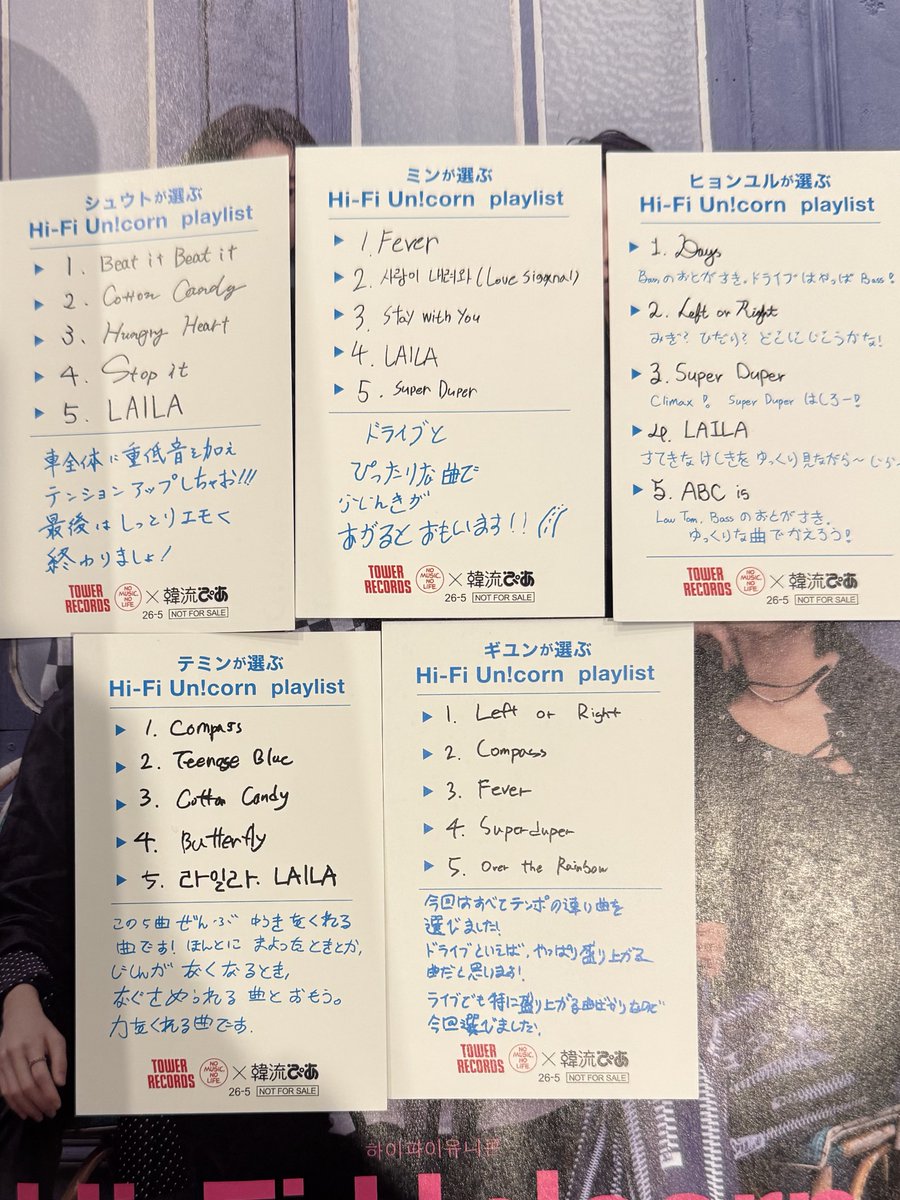 シュウトが選ぶ
Hi-Fi Un!corn playlist
1. Beat it Beat it
2. Cotton Candy
3. Hungry Heart
4. Stop it
5. LAILA
車全体に重低音を加え
テンションアップしちゃお!!!
最後はしっとりエモく
終わりましょ!
TOWER RECORDS NO MUSIC, NO LIFE. × 韓流ぴあ
26-5 NOT FOR SALE
ミンが選ぶ
Hi-Fi Un!corn playlist
1. Fever
2. 사랑이 내려와 (Love Siganal)
3. Stay With You
4. LAILA
5. Super Duper
ドライブと
ぴったりな曲で
ふいんきが
あがるとおもいます!!
TOWER RECORDS NO MUSIC, NO LIFE. × 韓流ぴあ
26-5 NOT FOR SALE
ヒョンユルが選ぶ
Hi-Fi Un!corn playlist
1. Days
Bassのおとがさき。ドライブはやっぱBass!
2. Left or Right
みぎ? ひだり? どこにいこうかな!
3. Super Duper
Climax!! Super Duper はしろー!
4. LAILA
すてきなけしきをゆっくり見ながら〜
5. ABC is
Low Tom, Bassのおとがさき。
ゆっくりな曲でかえろう!
TOWER RECORDS NO MUSIC, NO LIFE. × 韓流ぴあ
26-5 NOT FOR SALE
テミンが選ぶ
Hi-Fi Un!corn playlist
1. Compass
2. Teenage Blue
3. Cotton Candy
4. Butterfly
5. 라일라. LAILA
この5曲ぜんぶゆうきをくれる
曲です! ほんとにまよったときとか、
じしんがなくなるとき、
なぐさめられる曲とおもう。
力をくれる曲です.
TOWER RECORDS NO MUSIC, NO LIFE. × 韓流ぴあ
26-5 NOT FOR SALE
ギユンが選ぶ
Hi-Fi Un!corn playlist
1. Left or Right
2. Compass
3. Fever
4. Superduper
5. Over the Rainbow
今回はすべてテンポの速い曲を
選びました!
ドライブといえば、やっぱり盛り上がる
曲だと思います!
ライブでも特に盛り上がる曲ばかりなので
今回選びました。
TOWER RECORDS NO MUSIC, NO LIFE. × 韓流ぴあ
26-5 NOT FOR SALE
하이파이유니콘